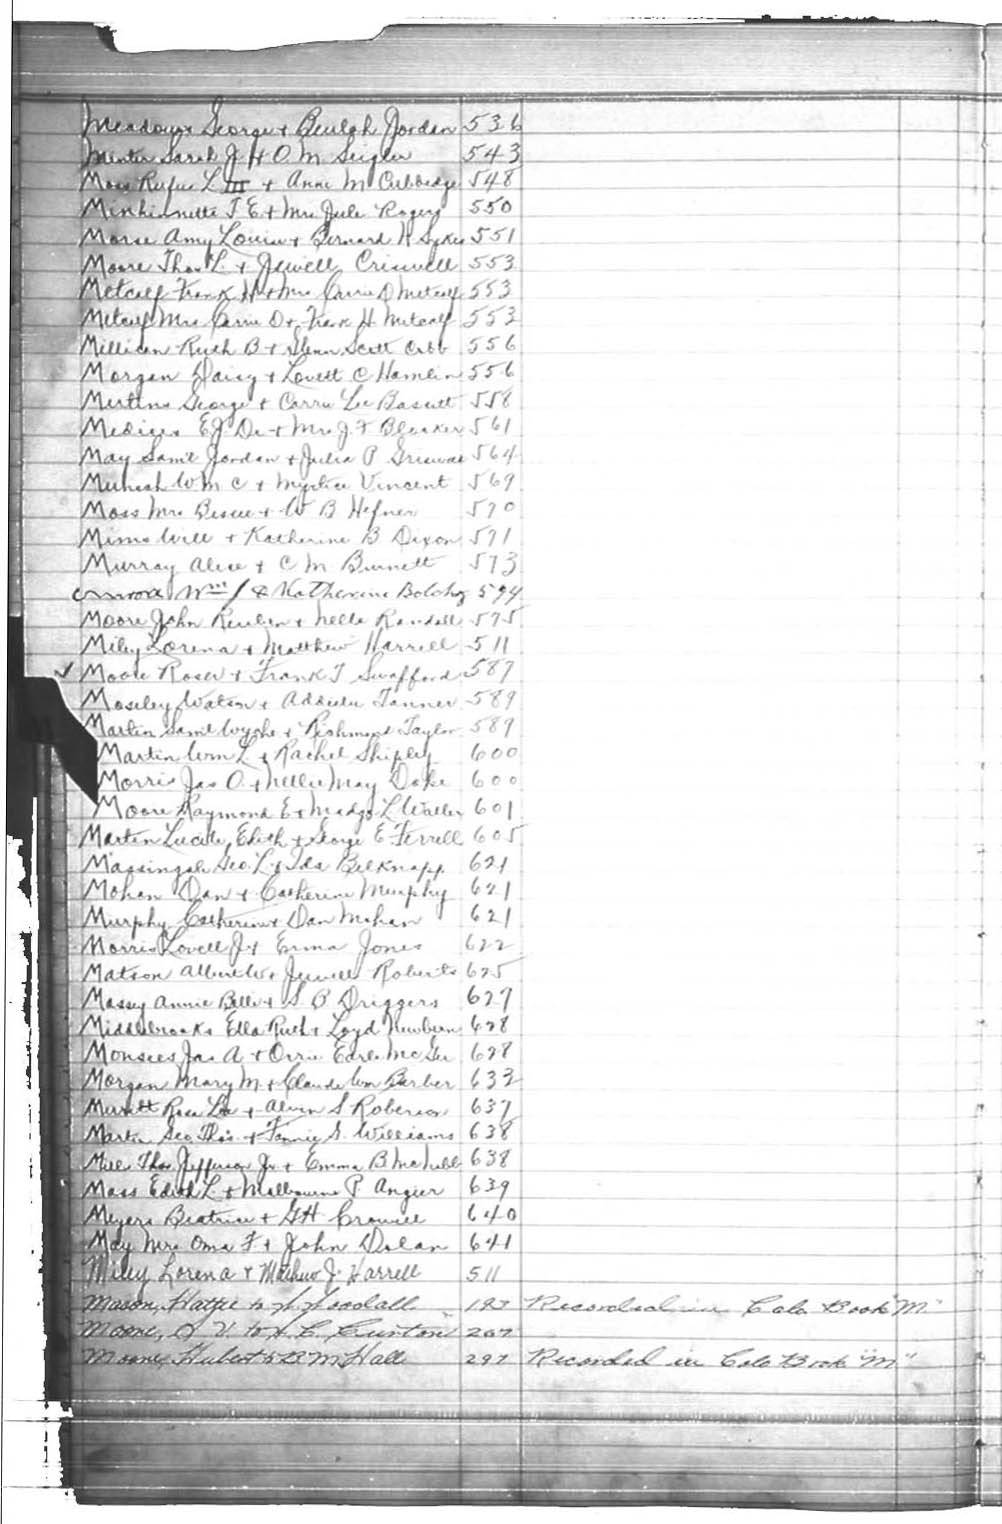 Meadows George + Beulah Jordan 536
Minter Sarah J + O. M. Seigler 543
Moss Rufus L III + Anne M Cubbedge 548
Minhinnette J E + Mrs Jule Rogers 550
Morse Amy Louise + Bernard N Sykes 551
Moore Thos L. + Jewell Criswell 553
Metcalf Frank H + Mrs Carrie D Metcalf 553
Metcalf Mrs Carrie D + Frank H Metcalf 553
Millican Ruth B + Glenn Scott Cobb 556
Morgan Daisy + Lovett C Hamlin 556
Mertins George + Carrie Lee Bassett 558
E J. Dr + Mrs J. F Bleaker 561
May Saml Jordan + Julia P 564
Wm C + Myrtice Vincent 569
Moss Mrs Bessie + W B Hefner 570
Mims Will + Katherine B Dixon 571
Murray Alice + C M Burnett 573
Wm J & Katherine 574
Moore John Reuben + Nelle Randall 575
Miley Lorena + Matthew Harrell 511
✓ Moore Rosa + Frank T Swafford 587
Moseley Watson + Tanner 589
Martin Saml Wyche + Taylor 589
Martin Wm L + Rachel Shipley 600
Morris Jas O. + Nellie May Doke 600
Moore Raymond E + Madge L Waller 601
Martin Lucile Edith + George E Ferrell 605
Massingale Geo. L + Ida Belknapp 621
Mohan Dan + Catherine Murphy 621
Murphy Catherine + Dan Mohan 621
Morris Lovell J + Emma Jones 622
Matson Albert W + Jewell Roberts 625
Massey Annie Belle + S. B Driggers 627
Middlebrooks Ella Ruth + Loyd Newbern 628
Monsees Jas A + Orrie Earle McGee 628
Morgan Mary M. + Claude Wm Barber 633
Merritt Rosa Lee + Alvin S Roberson 637
Martin Geo Thos. + Fannie S. Williams 638
Mill Thos Jefferson Jr + Emma B McNabb 638
Mass Edith L. + Melbourne P Angier 639
Meyers Beatrice + G H Crowell 640
May Mrs Oma F + John Dolan 641
Miley Lorena + Mathew J. Harrell 511
Mason, Hattie to Woodall 187 Recorded in Colo Book "M"
Moore, V. to C. 207
Moore, Hubert to B M Hall 297 Recorded in Colo Book "M"